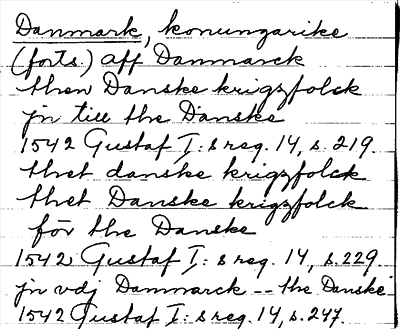 Danmark, konungarike
(forts.) aff Danmarck
then Danske krigzfolck
jn till the Danske
1542 Gustaf I: s reg. 14, s. 219.
thet danske krigzfolck
thet Danske krigzfolck
för the Danske
1542 Gustaf I: s reg. 14, s. 229.
jn vdj Danmarck -- the Danske
1542 Gustaf I: s reg. 14, s. 247.